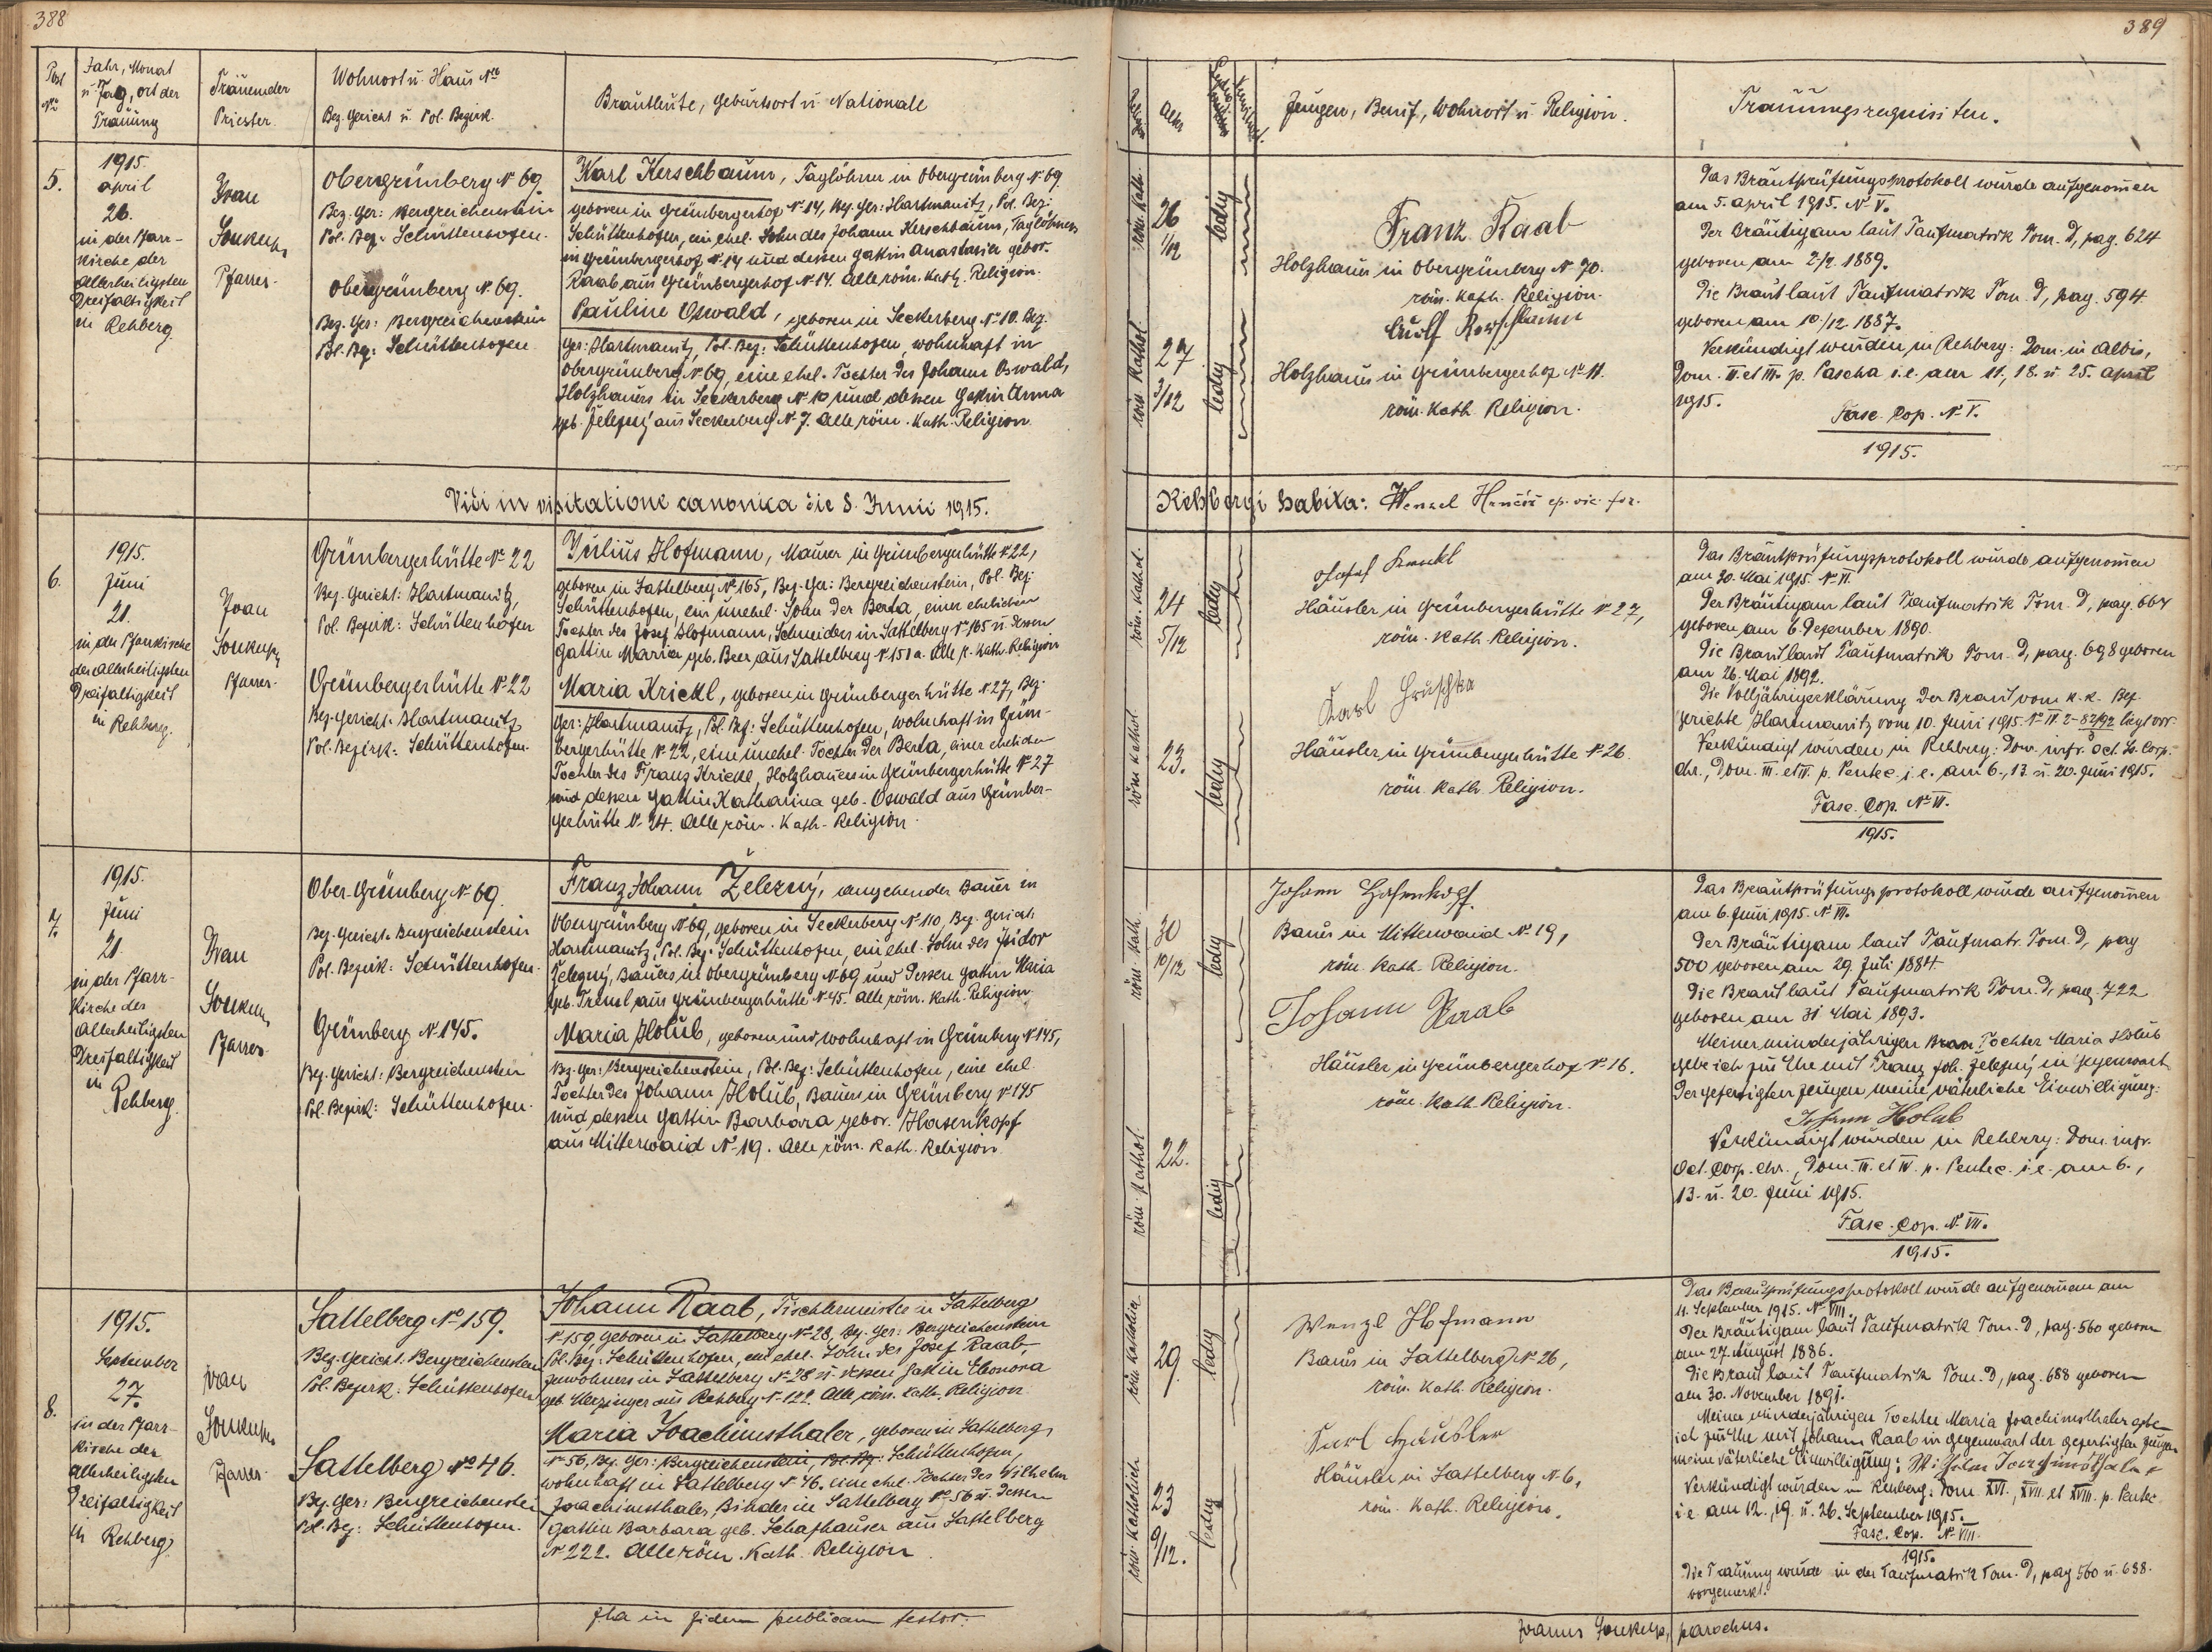 388
Post No
Jahr, Monat
u. Tag, ort der
Trauung
Trauender
Priester.
Wohnort u. Haus No
Bez. Gericht u. Pol. Bezirk.
Brautleute, Geburtsort u. Nationale
5.
1915.
April
26.
in der Pfarr-
kirche der
Allerheiligsten
Dreifaltigkeit
in Rehberg.
Ivan
Soukup,
Pfarrer.
Obergrünberg No 69.
Bez. Ger: Bergreichenstein
Pol. Bez. Schüttenhofen.
Obergrünberg No. 69.
Bez. Ger: Bergreichenstein
Pol. Bez: Schüttenhofen
Karl Kerschbaum, Taglöhner in Obergrünberg No 69.
geboren in Grünbergerhof No 14, Bez. Ger: Hartmanitz, Pol. Bez:
Schüttenhofen, ein ehel. Sohn des Johann Kerschbaum, Taglöhners
in Grünbergerhof No 14 und dessen Gattin Anastasia gebor.
Raab aus Grünbergerhof No 14. Alle röm. Kath. Religion.
Pauline Oswald, geboren in Seckerberg No 10. Bez.
Ger: Hartmanitz, Pol. Bez: Schüttenhofen, wohnhaft in
Obergrünberg No 69, eine ehel. Tochter des Johann Oswald,
Holzhauers in Seckerberg No 10 und dessen Gattin Anna
geb. Železný aus Seckerberg No 7. Alle röm. Kath. Religion.
Vidi in visitatione canonica die 8. Junii 1915.
6.
1915.
Juni
21.
in der Pfarrkirche
der allerheiligsten
Dreifaltigkeit
in Rehberg.
Ivan
Soukup,
Pfarrer.
Grünbergerhütte No 22
Bez. Gericht: Hartmanitz,
Pol. Bezirk: Schüttenhofen
Grünbergerhütte No 22
Bez. Gericht: Hartmanitz
Pol. Bezirk: Schüttenhofen.
Julius Hofmann, Maurer in Grünbergerhütte No 22,
geboren in Sattelberg No 165, Bez. Ger: Bergreichenstein, Pol. Bez:
Schüttenhofen, ein unehel. Sohn der Berta, einer ehelichen
Tochter des Josef Hofmann, Schneiders in Sattelberg No 165 u. dessen
Gattin Maria geb. Beer aus Sattelberg No 151 a. Alle r. Kath. Religion
Maria Krickl, geboren in Grünbergerhütte No 27, Bez.
Ger: Hartmanitz, Pol. Bez: Schüttenhofen, wohnhaft in Grün-
bergerhütte No 22, eine unehel. Tochter der Berta, einer ehelichen
Tochter des Franz Krickl, Holzhauers in Grünbergerhütte No 27
und dessen Gattin Katharina geb. Oswald aus Grünber-
gerhütte No 24. Alle röm. Kath. Religion.
7.
1915.
Juni
21.
in der Pfarr-
kirche des
Allerheiligsten
Dreifaltigkeit
in
Rehberg.
Ivan
Soukup,
Pfarrer.
Ober-Grünberg No 69.
Bez. Gericht. Bergreichenstein
Pol. Bezirk: Schüttenhofen.
Grünberg No 145.
Bez. Gericht: Bergreichenstein
Pol. Bezirk: Schüttenhofen.
Franz Johann Železný, angehender Bauer in
Obergrünberg No 69, geboren in Seckerberg No 110, Bez. Gericht
Hartmanitz, Pol. Bez: Schüttenhofen, ein ehel. Sohn des Isidor
Železný, Bauers in Obergrünberg No 69 und dessen Gattin Maria
geb. Trensl aus Grünbergerhütte No 45. Alle röm. Kath. Religion.
Maria Holub, geboren und wohnhaft in Grünberg No 145,
Bez. Ger: Bergreichenstein, Pol. Bez: Schüttenhofen, eine ehel.
Tochter des Johann Holub, Bauers in Grünberg No 145
und dessen Gattin Barbara gebor. Hasenkopf
aus Mitterwaid No 19. Alle röm. Kath. Religion.
8.
1915.
September
27.
in der Pfarr-
kirche der
Allerheiligsten
Dreifaltigkeit
in Rehberg.
Ivan
Soukup,
Pfarrer.
Sattelberg No 159.
Bez. Gericht. Bergreichenstein
Pol. Bezirk: Schüttenhofen
Sattelberg No 46.
Bez. Ger: Bergreichenstein
Pol. Bez: Schüttenhofen.
Johann Raab, Tischlermeister in Sattelberg
No 159, geboren in Sattelberg No 28, Bez. Ger: Bergreichenstein
Pol. Bez: Schüttenhofen, ein ehel. Sohn des Josef Raab,
Inwohners in Sattelberg No 28 u. dessen Gattin Eleonora
aus Rehberg No 122. Alle röm. kath. Religion
Maria Joachimsthaler, geboren in Sattelberg
No 56, Bez. Ger: Bergreichenstein, Pol. Bez: Schüttenhofen,
wohnhaft in Sattelberg No 46. eine ehel. Tochter des Wilhelm
Joachimsthaler, Binder in Sattelberg No 56 u. dessen
Gattin Barbara geb. Schafhauser aus Sattelberg
No 222. Alle röm. Kath. Religion.
Ita in fidem publicam testor.
389
Alter
Zeugen, Beruf, Wohnort u. Religion.
Trauungsrequisiten.
röm. Kath.
26
1/12
ledig
röm. Kathol.
27
3/12
ledig
Franz Raab
Holzhauer in Obergrünberg No 70.
röm. Kath. Religion.
Holzhauer in Grünbergerhof No 11.
röm. Kath. Religion.
Das Brautprüfungsprotokoll wurde aufgenom̄en
am 5. April 1915. No V.
Der Bräutigam laut Taufmatrik Tom. D, pag. 624
geboren am 2/2. 1889.
Die Braut laut Taufmatrik Tom. D, pag. 594
geboren am 10./12. 1887.
Verkündigt wurden in Rehberg: Dom. in Albis,
Dom. II. et III. p. Pascha i.e. am 11, 18. u. 25. April
1915.
Fasc. Cop. No V.
1915.
Rehbergi habita: Wenzel ep. vic. for.
röm. Kathol.
24
5/12
ledig
röm. Kathol.
23.
ledig
Josef
Häusler in Grünbergerhütte No 27,
röm. Kath. Religion.
Karl Hruschka
Häusler in Grünbergerhütte No 26.
röm. Kath. Religion.
Das Brautprüfungsprotokoll wurde aufgenom̄en
am 30. Mai 1915. No VI.
Der Bräutigam laut Taufmatrik Tom. D, pag. 664
geboren am 6. Dezember 1890.
Die Braut laut Taufmatrik Tom. D, pag. 698 geboren
am 26. Mai 1892.
Die Volljährigerklärung der Braut vom k.k. Bez.
gerichte Hartmanitz vom 10. Juni 1915. liegt vor.
Verkündigt wurden in Rehberg: Dom. infr. Oct. Ss. Corp.
Chr., Dom. III. et IV. p. Pentec. i.e. am 6., 13. u. 20. Juni 1915.
Fasc. Cop. No VI.
1915.
röm. Kath.
30
10/12
ledig
röm. Kathol.
22.
ledig
Johann Hasenkopf.
Bauer in Mitterwaid No 19,
röm. Kath. Religion.
Johann Raab
Häusler in Grünbergerhof No 16.
röm. Kath. Religion.
Das Brautprüfungsprotokoll wurde aufgenom̄en
am 6. Juni 1915. No VII.
Der Bräutigam laut Taufmatr. Tom. D, pag
500 geboren am 29. Juli 1884.
Die Braut laut Taufmatrik Tom. D, pag. 722
geboren am 31 Mai 1893.
Meiner minderjährigen Tochter Maria Holub
gebe ich zur Ehe mit Franz Joh. Železný in Gegenwart
der gefertigten Zeugen meine väterliche Einwilligung:
Johann Holub
Verkündigt wurden in Rehberg: Dom. infr.
Oct. Corp. Chr., Dom. III. et IV. p. Pentec. i.e. am 6.,
13. u. 20. Juni 1915.
Fasc. Cop. No VII.
1915.
röm. Katholich
29.
ledig
röm. Katholich
23
9/12.
ledig
Wenzl Hofmann
Bauer in Sattelberg No 26,
röm. Kath. Religion.
Karl Häusler
Häusler in Sattelberg No 6,
röm. Kath. Religion.
Das Brautprüfungsprotokoll wurde aufgenom̄en am
11. September 1915. No VIII.
Der Bräutigam laut Taufmatrik Tom. D, pag. 560 geboren
am 27. August 1886.
Die Braut laut Taufmatrik Tom. D, pag. 688 geboren
am 30. November 1891.
Meiner minderjährigen Tochter Maria Joachimsthaler gebe
ich zur Ehe mit Johann Raab in Gegenwart der gefertigten Zeugen
meine väterliche Einwilligung: Wilhelm Joachimsthaler
Verkündigt wurden in Rehberg: Dom. XVI., XVII. et XVIII. p. Pentec.
i.e. am 12., 19. u. 26. September 1915.
Fasc. Cop. No VIII.
1915.
Die Trauung wurde in der Taufmatrik Tom. D, pag 560 u. 688.
vorgemerkt.
Joannes Soukup, parochus.